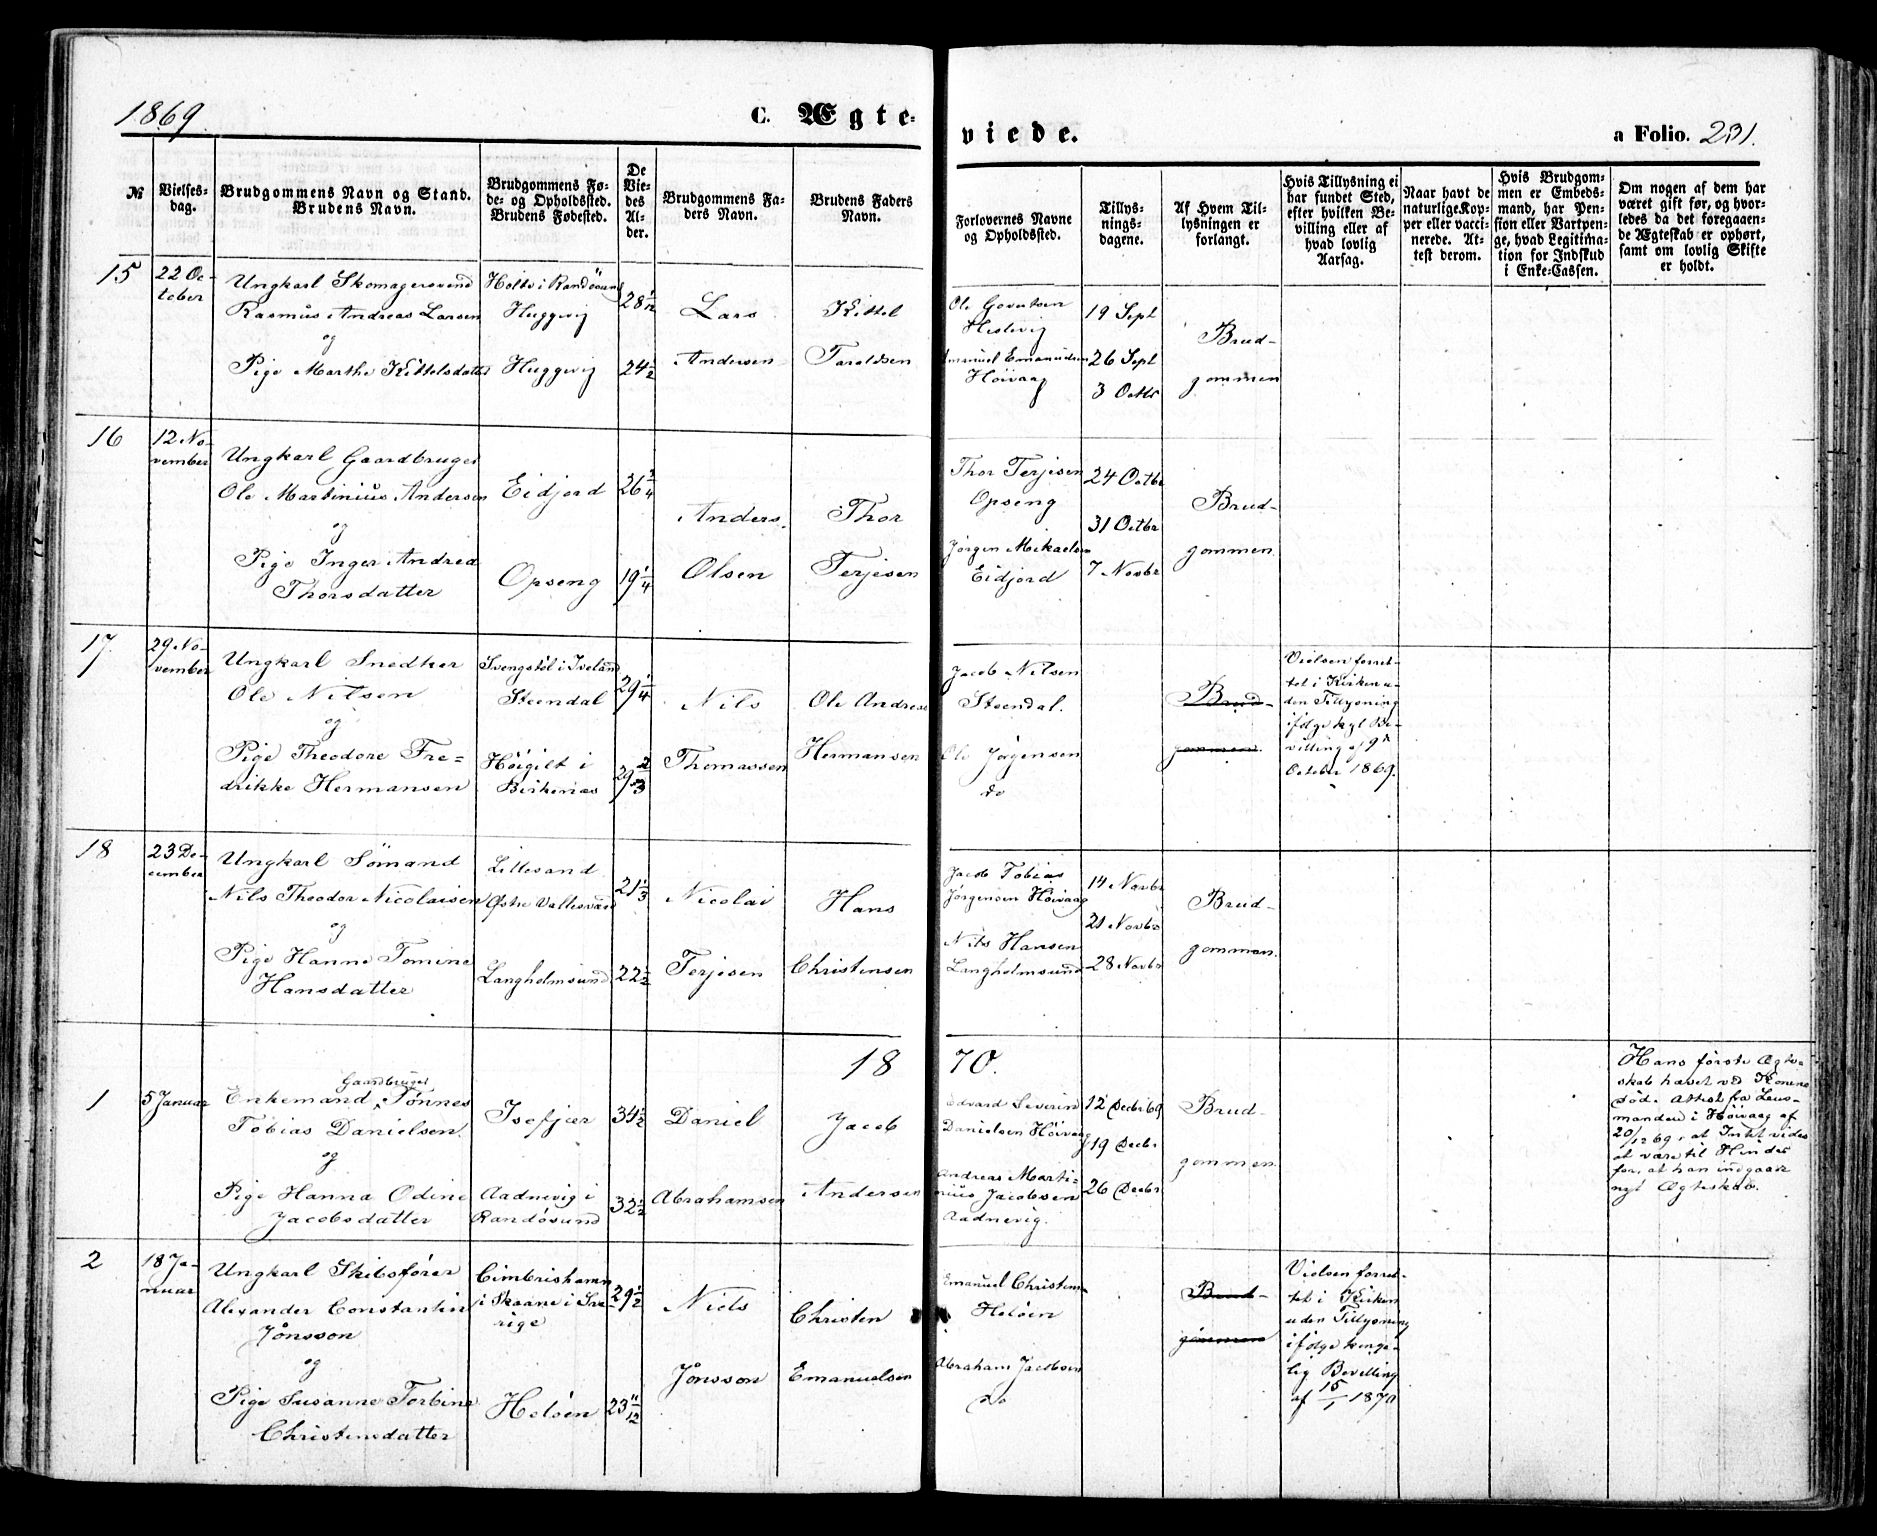 1869
C. Ægte-
viede.
a Folio. 231.
№
Vielses-
dag.
Brudgommens Navn og Stand.
Brudens Navn.
Brudgommens Fø-
de- og Opholdssted.
Brudens Fødested.
De
Vie-
des
Al-
der.
Brudgommens Fa-
ders Navn.
Brudens Faders
Navn.
Forlovernes Navne
og Opholdssted.
Tillys-
nings-
dagene.
Af Hvem Til-
lysningen er
forlangt.
Hvis Tillysning ei
har fundet Sted,
efter hvilken Be-
villing eller af
hvad lovlig
Aarsag.
Naar havt de
naturlige Kop-
per eller vacci-
nerede. At-
test derom.
Hvis Brudgom-
men er Embeds-
mand, har Pen-
sion eller Vartpen-
ge, hvad Legitima-
tion for Indskud
i Enke-Cassen.
Om nogen af dem har
været gift før, og hvor-
ledes da det foregaaen-
de Ægteskab er ophørt,
samt om lovlig Skifte
er holdt.
15
22 Oc-
tober
Ungkarl Skomagersvend
Rasmus Andreas Larsen
og
Pige Marthe Kittelsdatter
Holte i Randösund
Huggevig
Huggevig
28 1/12
24 1/2
Lars
Andersen
Kittel
Taraldsen
Ole
Emanuel Emanuelsen
Höivaag
19 Sept
26 Sept
3 Octbr
Brud-
gommen
16
12 No-
vember
Ungkarl Gaardbruger
Ole Martinius Andersen
og
Pige Inger Andrea
Thorsdatter
Eidjord
Opseng
26 3/4
19 1/4
Anders
Olsen
Thor
Terjesen
Thor Terjesen
Opseng
Jørgen Mikaelsen
Eidjord
24 Octbr
31 Octbr
7 Novbr
Brud-
gommen
17
29 No-
vember
Ungkarl Snedker
Ole Nilsen
og
Pige Theodore Fre=
drikke Hermansen
Svengstöl i Iveland
Steendal
Höigilt i
Birkenæs
29 1/4
29 2/3
Nils
Thomassen
Ole Andreas
Hermansen
Jacob Nilsen
Steendal.
Ole Jørgensen
do
Brud-
gommen.
Vielsen forret-
tet i Kirken u-
den Tillysning
ifølge kgl Be-
villing af 9de
October 1869.
18
23 De-
cember
Ungkarl Sömand
Nils Theodor Nicolaisen
og
Pige Hanne Tomine
Hansdatter
Lillesand
Østre Vallesværd
Langholmsund
21 1/3
22 1/2
Nicolai
Terjesen
Hans
Christensen
Jacob Tobias
Jørgensen Höivaag
Nils Hansen
Langholmsund
14 Novbr
21 Novbr
28 Novbr
Brud-
gommen.
1870.
1
5 Januar
Gaardbruger
Enkemand Tønnes
Tobias Danielsen
og
Pige Hanna Odine
Jacobsdatter
Isefjær
Aadnevig i
Randösund
34 1/2
32 1/2
Daniel
Abrahamsen
Jacob
Andersen
Edvard Severin
Danielsen Höivaag
Andreas Marti-
nius Jacobsen
Aadnevig.
12 Decbr 69
19 Decbr
26 Decbr
Brud-
gommen
Hans første Ægte-
skab hævet ved Konens
Död. Attest fra Lens-
manden i Höivaag af
20/12 69, at Intet vides
at være til Hinder
for, at han indgaaer
nyt Ægteskab.
2
18 Ja-
nuar
Ungkarl Skibsfører
Alexander Constantin
Jönsson
og
Pige Susanne Torbine
Christensdatter
Cimbrishamn
i Skaane i Sve-
rige
Helöen
29 1/2
23 11/12
Niels
Jönsson
Christen
Emanuelsen
Emanuel Christens-
Helöen
Abraham Jacobsen
Do
Brud-
gommen
Vielsen forret-
tet i Kirken
uden Tillysning
ifølge konge-
lig Bevilling
af 15/1 1870